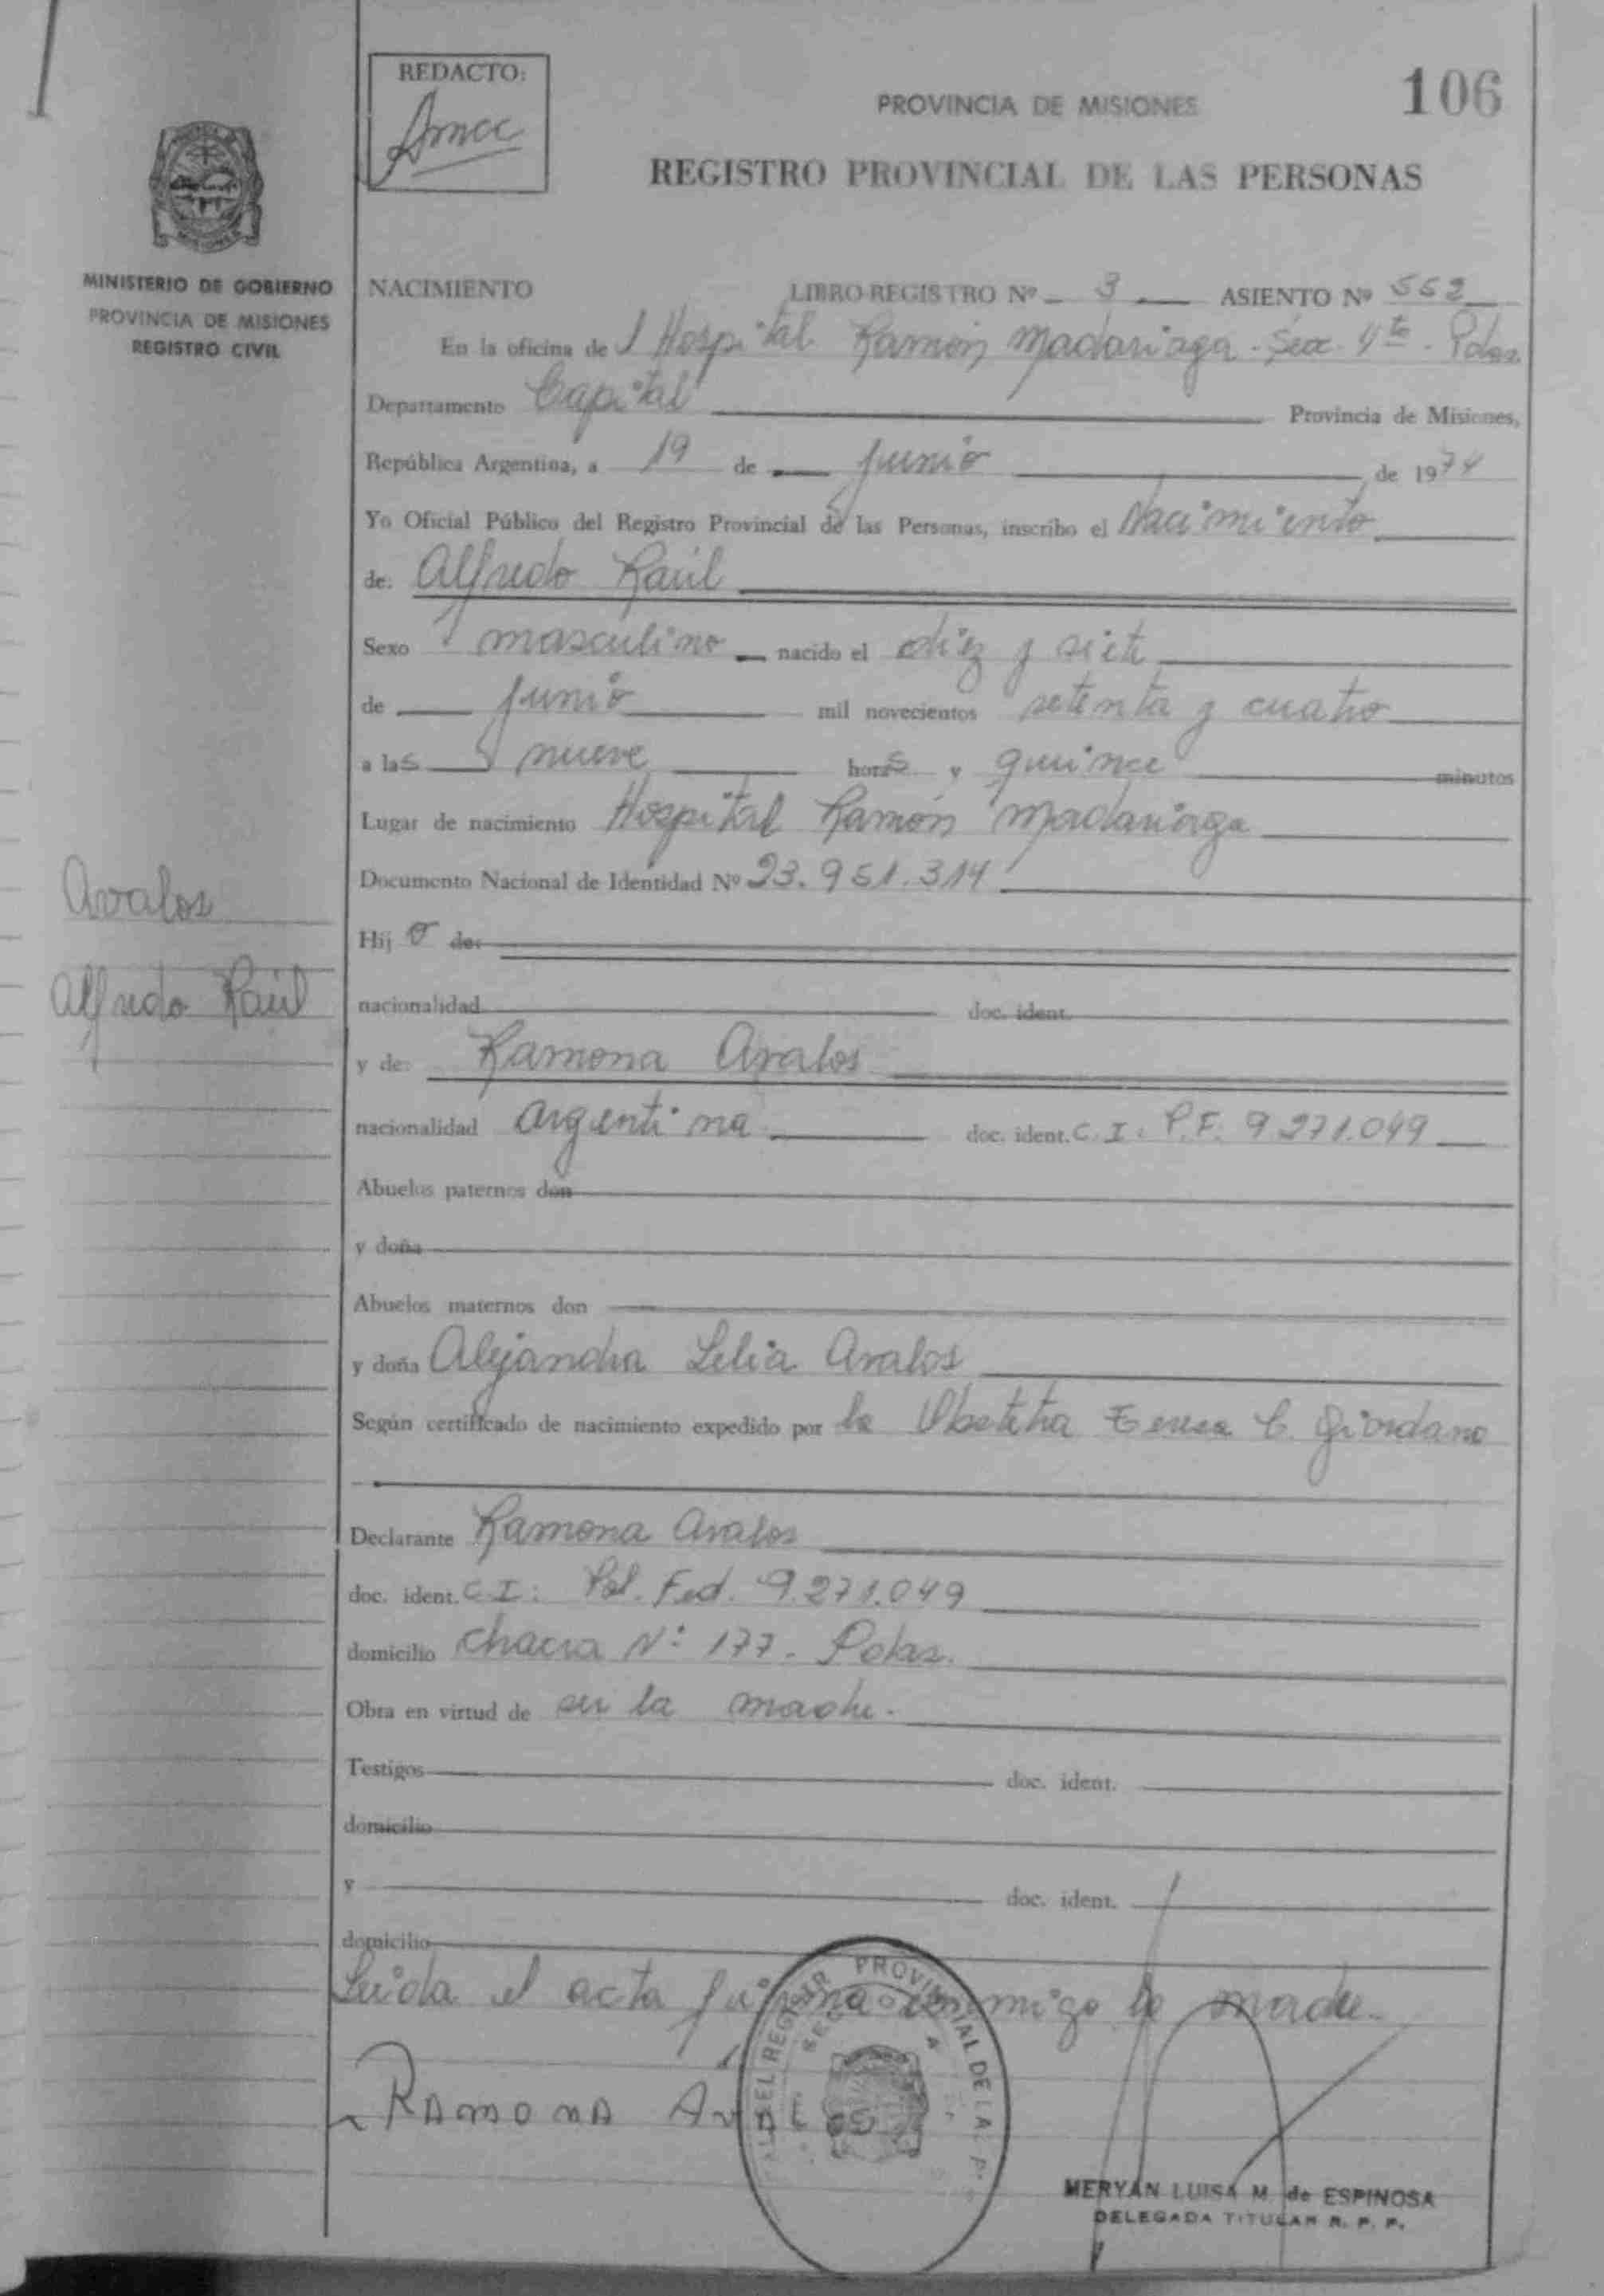 REDACTO:
Amcc
PROVINCIA DE MISIONES
106
REGISTRO PROVINCIAL DE LAS PERSONAS
MINISTERIO DE GOBIERNO
PROVINCIA DE MISIONES
REGISTRO CIVIL
NACIMIENTO LIBRO REGISTRO Nº 3 ASIENTO Nº 552
En la oficina de l Hospital Ramón Madariaga. Sec. 4ta. Pdas.
Departamento Capital Provincia de Misiones,
República Argentina, a 19 de junio de 1974
Yo Oficial Público del Registro Provincial de las Personas, inscribo el Nacimiento
de: Alfredo Raúl
Sexo masculino nacido el diez y siete
de junio mil novecientos setenta y cuatro
a las nueve horas y quince minutos
Lugar de nacimiento Hospital Ramón Madariaga
Documento Nacional de Identidad Nº 23.951.314
Avalos
Alfredo Raúl
Hij o de:
nacionalidad doc. ident.
y de: Ramona Avalos
nacionalidad argentina doc. ident. C. I: P.F. 9.271.049
Abuelos paternos don
y doña
Abuelos maternos don
y doña Alejandra Lelia Avalos
Según certificado de nacimiento expedido por la Obstetra Teresa C. Giordano
Declarante Ramona Avalos
doc. ident. C I: Pol. Fed. 9.271.049
domicilio chacra Nº 177. Pdas.
Obra en virtud de ser la madre.
Testigos doc. ident.
domicilio
y doc. ident.
domicilio
Leída el acta firma conmigo la madre.
RAMONA AVALOS
REGISTR PROVINCIAL DE LA P
SECC 4
MERYAN LUISA M. de ESPINOSA
DELEGADA TITULAR R. P. P.